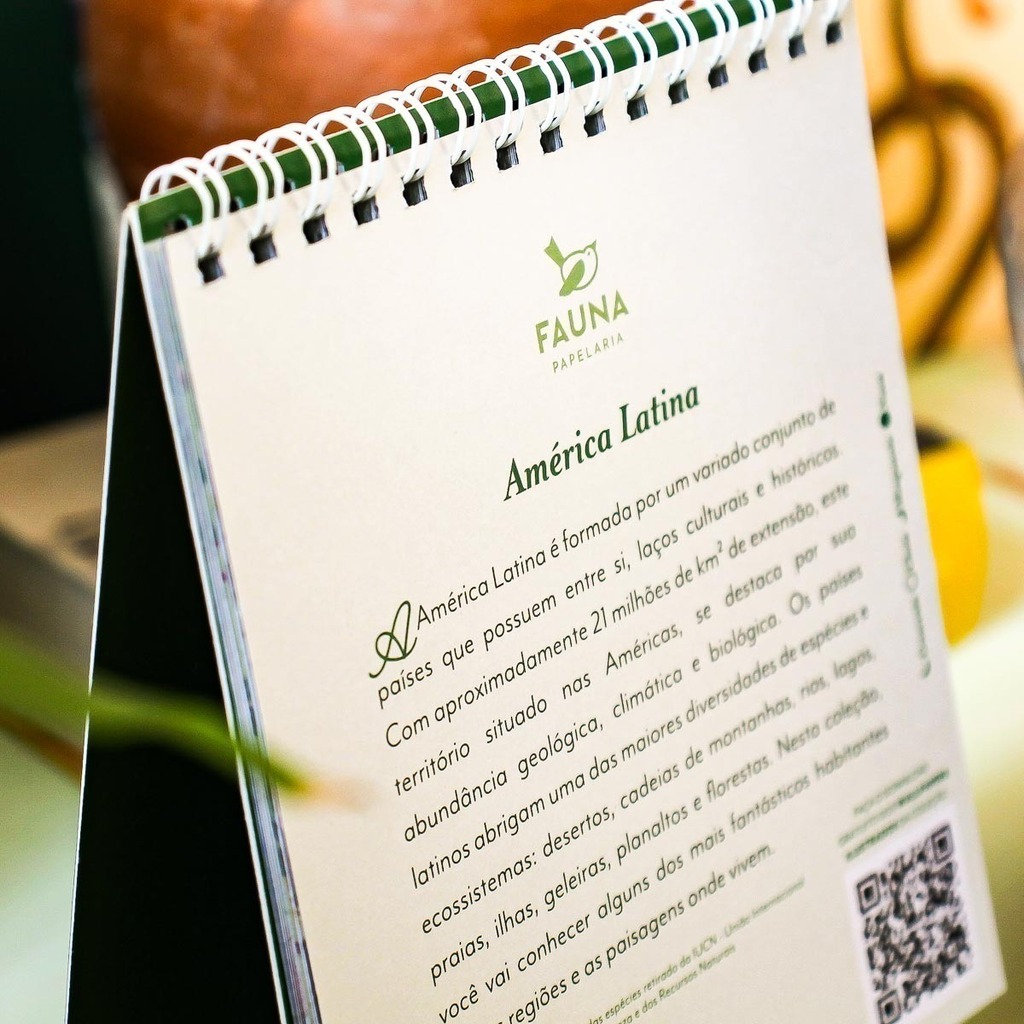 FAUNA
PAPELARIA
América Latina
A América Latina é formada por um variado conjunto de
países que possuem entre si, laços culturais e históricos.
Com aproximadamente 21 milhões de km² de extensão, este
território situado nas Américas, se destaca por sua
abundância geológica, climática e biológica. Os países
latinos abrigam uma das maiores diversidades de espécies e
ecossistemas: desertos, cadeias de montanhas, rios, lagos,
praias, ilhas, geleiras, planaltos e florestas. Nesta coleção,
você vai conhecer alguns dos mais fantásticos habitantes
regiões e as paisagens onde vivem.
das espécies retirado da IUCN - União Internacional
e dos Recursos Naturais